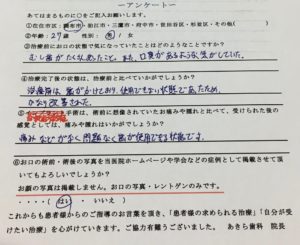 ーアンケートー
あてはまるものに○をご記入お願いします。
①住居地区:調布市・狛江市・三鷹市・府中市・世田谷区・杉並区・その他( )
②年齢:29歳 性別:男・女
③治療前にお口の状態で気になっていたことはどのようなことですか?
むし歯がたくさんあったこと。また、口臭があるように感じていた。
④治療完了後の状態は、治療前と比べていかがでしょうか?
治療前は歯がかけており、使用できない状態であったため、
かなり改善された。
手術は、術前に想像されていたお痛みや腫れと比べて、受けられた後の
感覚としては、痛みや腫れはいかがでしょうか?
痛みなどがなく問題なく歯が使用できる状態です。
⑥お口の術前・術後の写真を当医院ホームページや学会などの症例として掲載させて頂い
てもよろしいでしょうか?
お顔の写真は掲載しません。お口の写真・レントゲンのみです。
・・・・(はい・いいえ)
これからも患者様からのご指導のお言葉を頂き、「患者様の求められる治療」「自分が受
けたい治療」を心がけていきます。ご協力有難うございました。 あきら歯科 院長